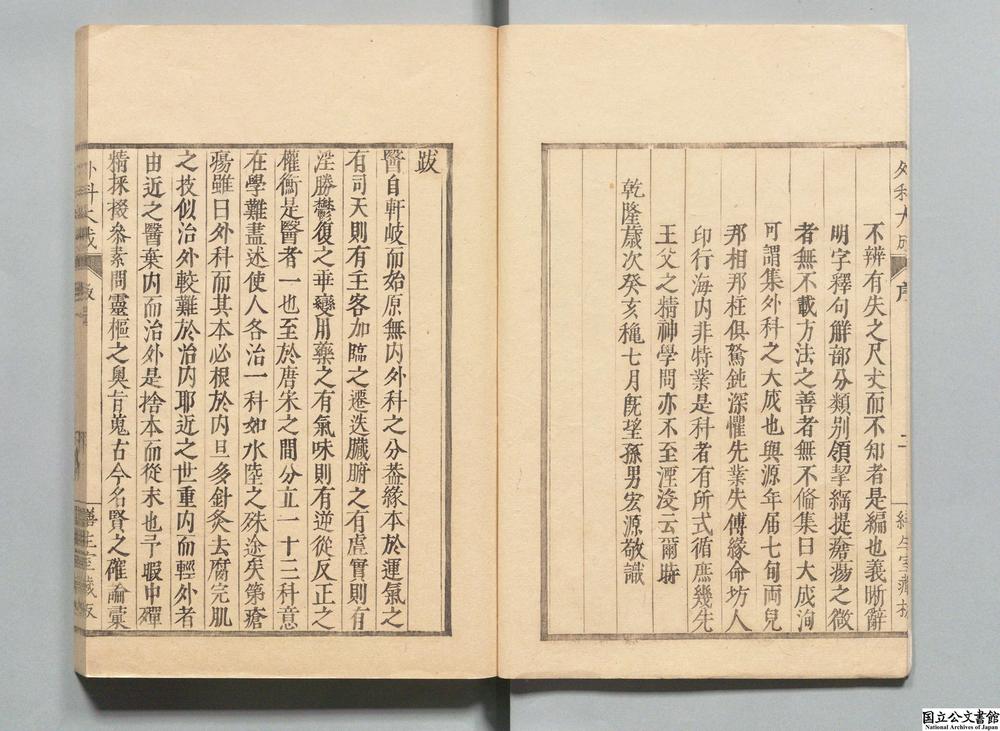 外科大成
序
二
善生室藏板
不辨有失之尺丈而不知者是編也義晰辭
明字釋句觧部分類别領挈綱提瘡瘍之微
者無不載方法之善者無不俻集曰大成洵
可謂集外科之大成也與源年届七旬兩兒
那相那柱俱駑鈍深懼先業失傳緣命坊人
印行海内非特業是科者有所式循庶幾先
王父之精神學問亦不至湮没云爾時
乾隆歲次癸亥穐七月旣望孫男宏源敬識
跋
醫自軒岐而始原無内外科之分葢緣本於運氣之
有司天則有主客加臨之遷迭臟腑之有虛實則有
淫勝鬱復之乖變用藥之有氣味則有逆從反正之
權衡是醫者一也至於唐宋之間分立一十三科意
在學難盡述使人各治一科如水陸之殊途矣第瘡
瘍雖曰外科而其本必根於内且多針灸去腐完肌
之技似治外較難於治内耶近之世重内而輕外者
由近之醫棄内而治外是捨本而從末也予暇中殫
精採掇叅素問靈樞之奥旨蒐古今名賢之確論彚
外科大成
跋
善生室藏板
国立公文書館
National Archives of Japan